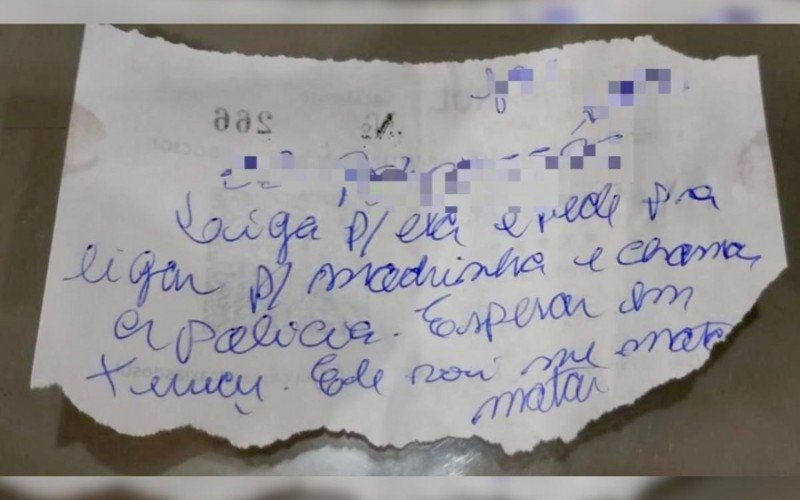 266 Nº
Liga p/ ela e pede pra
ligar p/ madrinha e chama
a policia. Esperar em
Ele vai me mata
matar